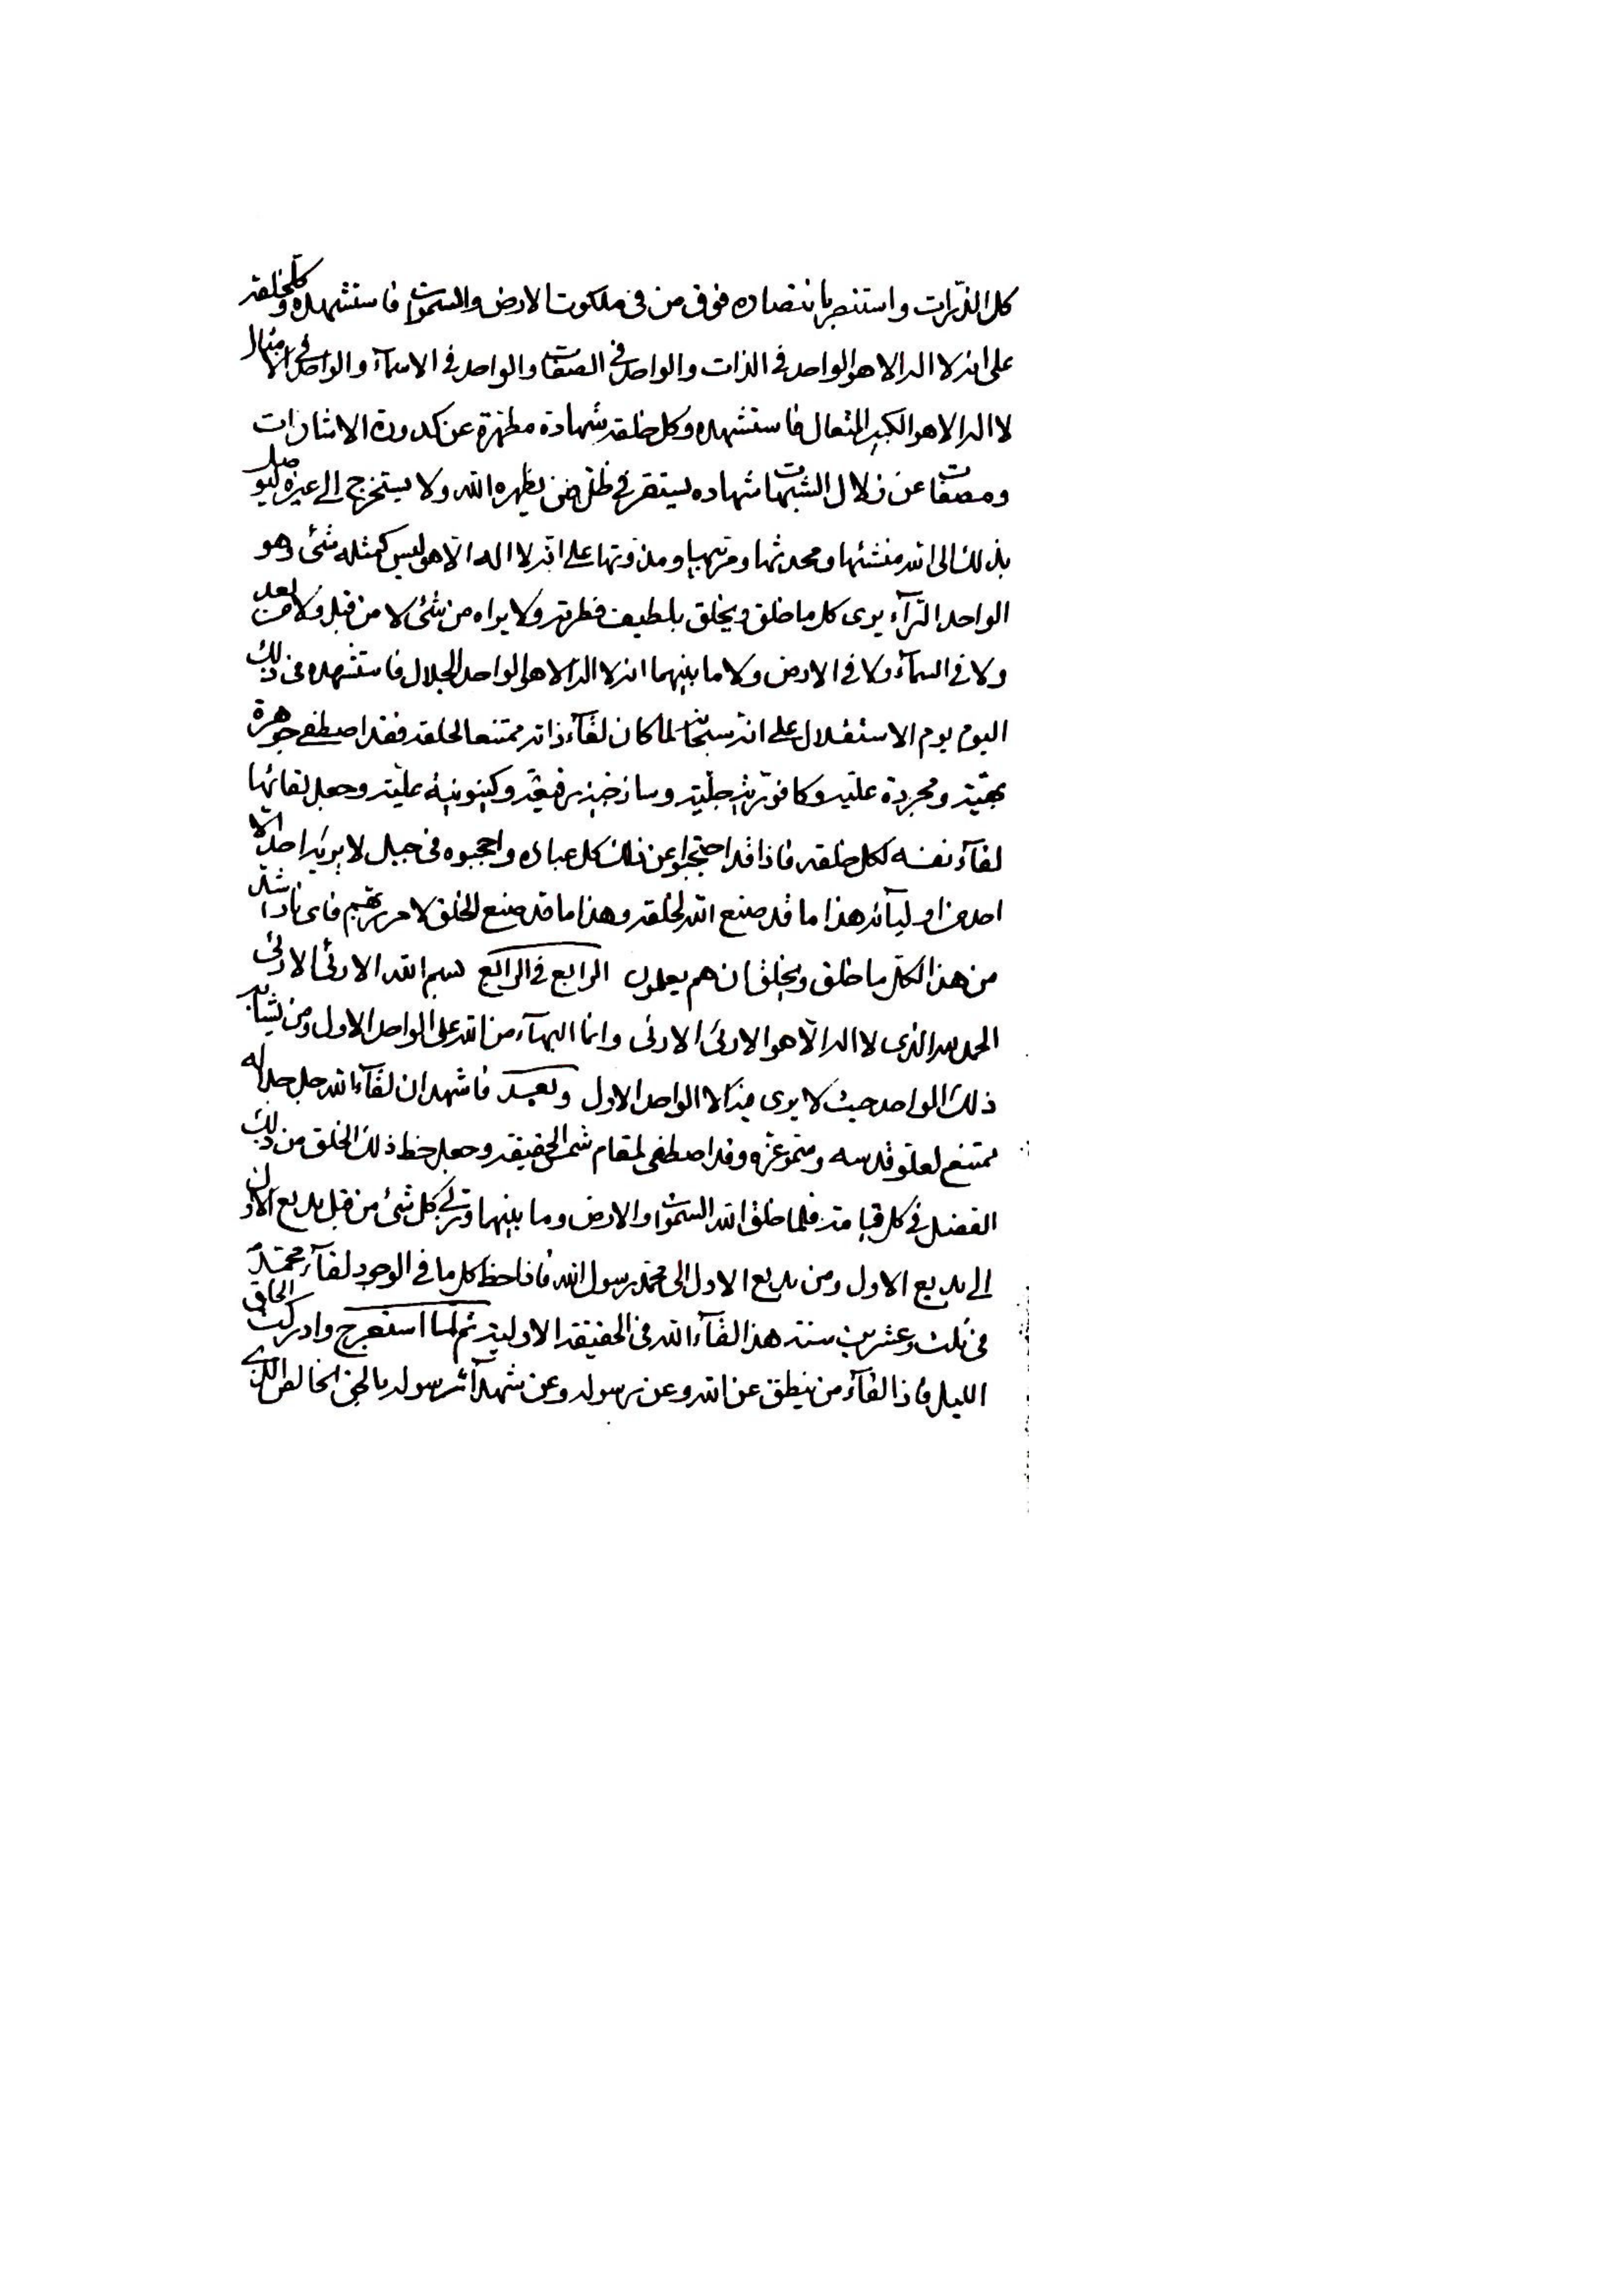 كل الذرّات واستنصر بانتصاره فوق من فى ملكوت الارض والسموات فاستشهده وكلخلقه
على انه لا اله الا هو الواحد فى الذات والواحد فى الصفات والواحد فى الاسمآء والواحد فى الامثال
لا اله الا هو الكبير المتعال فاستشهده وكل خلقه شهادة مطهرة عن كدورة الاشارات
ومصفات عن زلال الشبهات شهاده يستقر فى ظل من يظهره الله ولا يستخرج الى غيره ليوصل
بذلك الى الله منشئها ومحدثها ومربيها ومذوتها على انه لا اله الّا هو ليس كمثله شئ وهو
الواحد الترآء يرى كل ما خلق ويخلق بلطيف فطرته ولا يراه من شئ لا من قبل ولا من بعد
ولا فى السمآء ولا فى الارض ولا ما بينهما انه لا اله الا هو الواحد الجلال فاستشهده فى ذلك
اليوم يوم الاستقلال على انه سبحانه لما كان لقآء ذاته ممتنعا لخلقه فقد اصطفى جوهرة
بهيّة ومجردة عليه وكافوريّة جليّة وساذجيه رفيعّة وكينونية عليّة وجعل لقائها
لقآء نفسه لكل خلقه فاذا قد احتجبوا عن ذلك كل عباده واحجبوه فى جبل لا يريه احد الّا
احد من اوليآئه هذا ما قد صنع الله لخلقه وهذا ما قد صنع الخلق لامر ربهم فاى نار اشد
من هذا لكل ما خلق ويخلق ان هم يعلمون الرابع فى الرابع بسم الله الارئى الارئى
الحمد لله الذى لا اله الّا هو الارئى الارئى وانما البهآء من الله على الواحد الاول ومن يشابه
ذلك الواحد حيث لا يرى فيه الا الواحد الاول وبعد فاشهد ان لقآء الله جل جلاله
ممتنع لعلو قدسه وسمو عزه وقد اصطفى لمقام شمس الحقيقه وجعل حظ ذلك الخلق من ذلك
الفضل فى كل قيامة فلما خلق الله السموات والارض وما بينهما وتربى كل شئ من قبل بديع الاول
الى بديع الاول ومن بديع الاول الى محمد رسول الله فاذا حظ كل ما فى الوجود لقآء محمد
فى ثلث وعشرين سنة هذا لقآء الله فى الحقيقه الاولية ثم لما استعرج وادركت الخلق
الليل فاذا لقآء من ينطق عن الله وعن رسوله وعن شهدآئه رسوله بالحق الخالص الذى